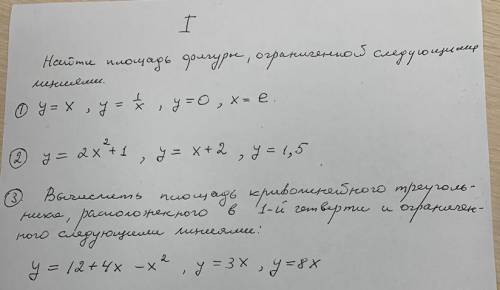 I
Найти площадь фигуры, ограниченной следующими
линиями.
① y = x , y = 1/x , y = 0 , x = e.
② y = 2x² + 1 , y = x + 2 , y = 1,5
③ Вычислить площадь криволинейного треуголь-
ника, расположенного в 1-й четверти и ограничен-
ного следующими линиями:
y = 12 + 4x - x² , y = 3x , y = 8x